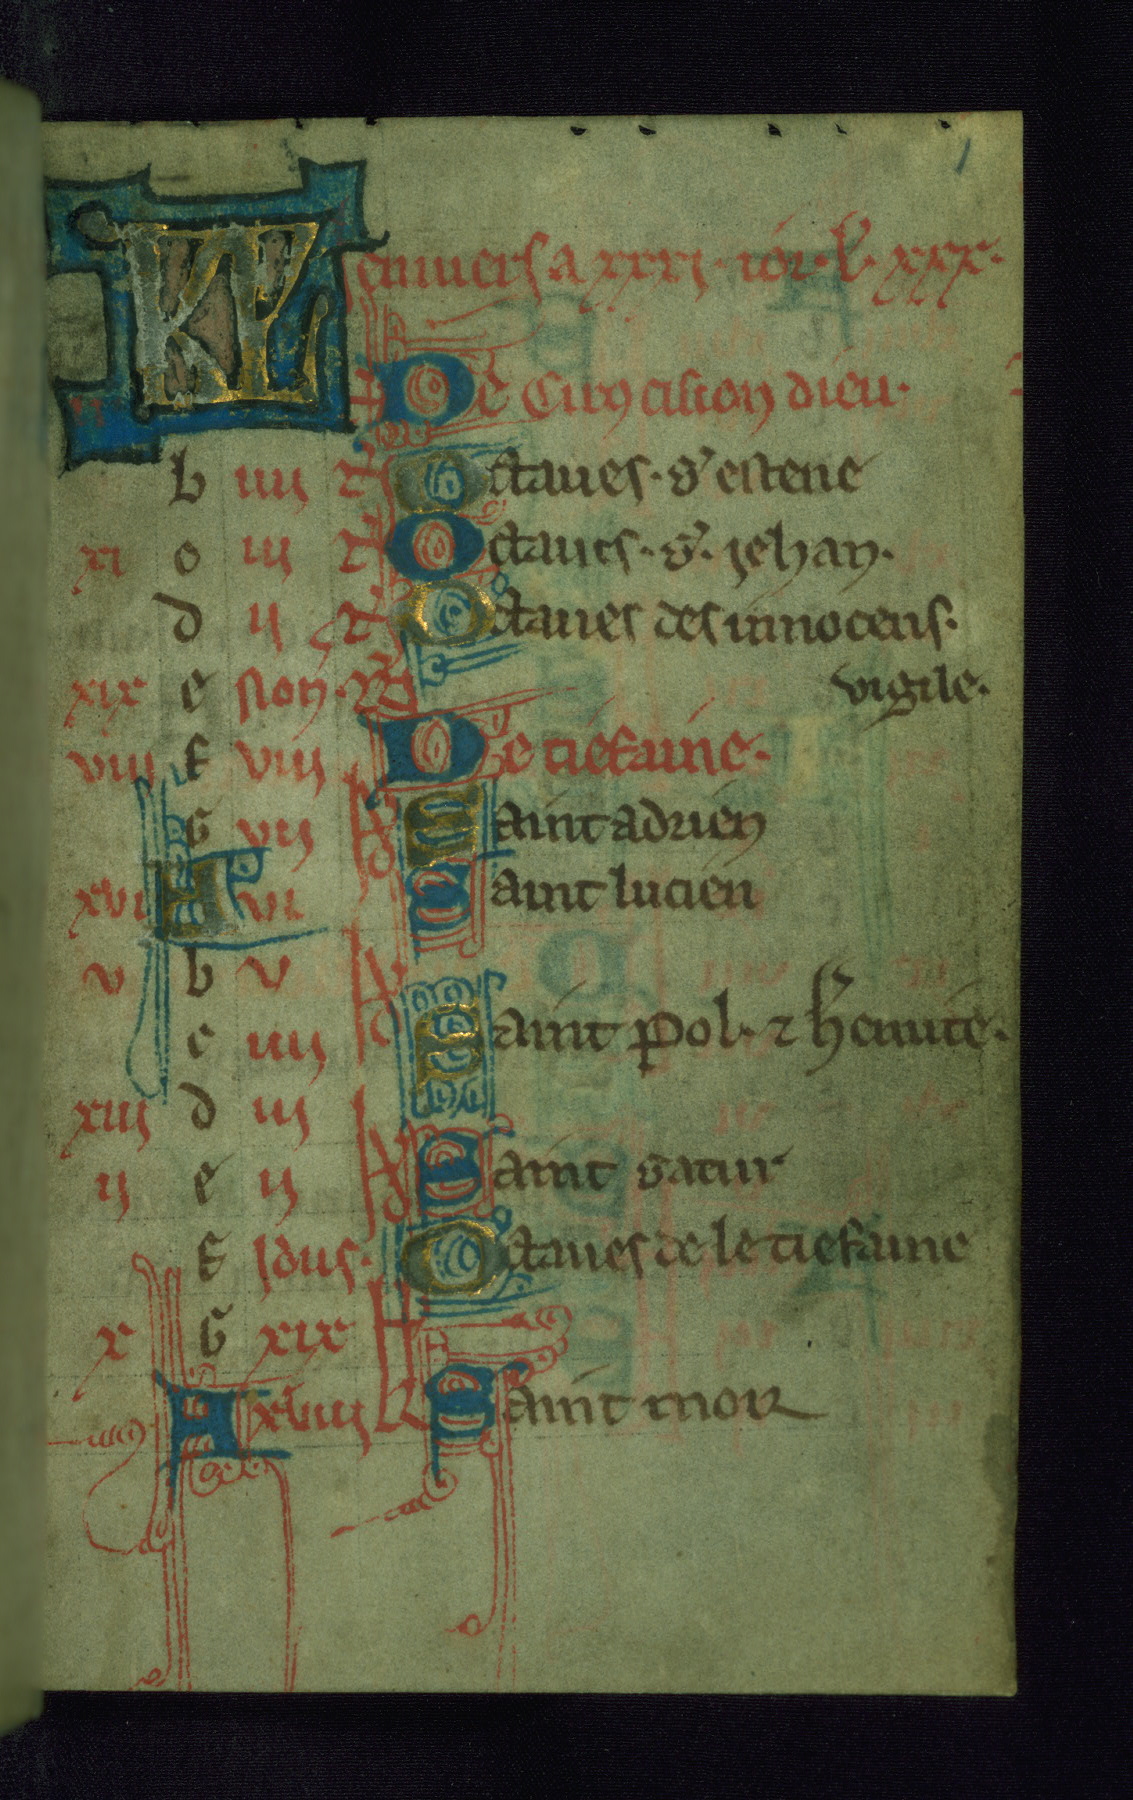 1
KL Jenuiers a xxxi ior l xxx
De Circuncision dieu
b iiii Octaues s' estene
xi c iii Octaues s' jehan
d ii Octaues des innocens
xix e non vigile
viii f viii De tiefaine
G vii Saint adrien
xvi A vi Saint lucien
v b v
c iiii Saint pol 7 hermite
xiii d iii
ii e ii Saint satur
f idus Octaues de le tiefaine
x G xix
A xviii Saint mor